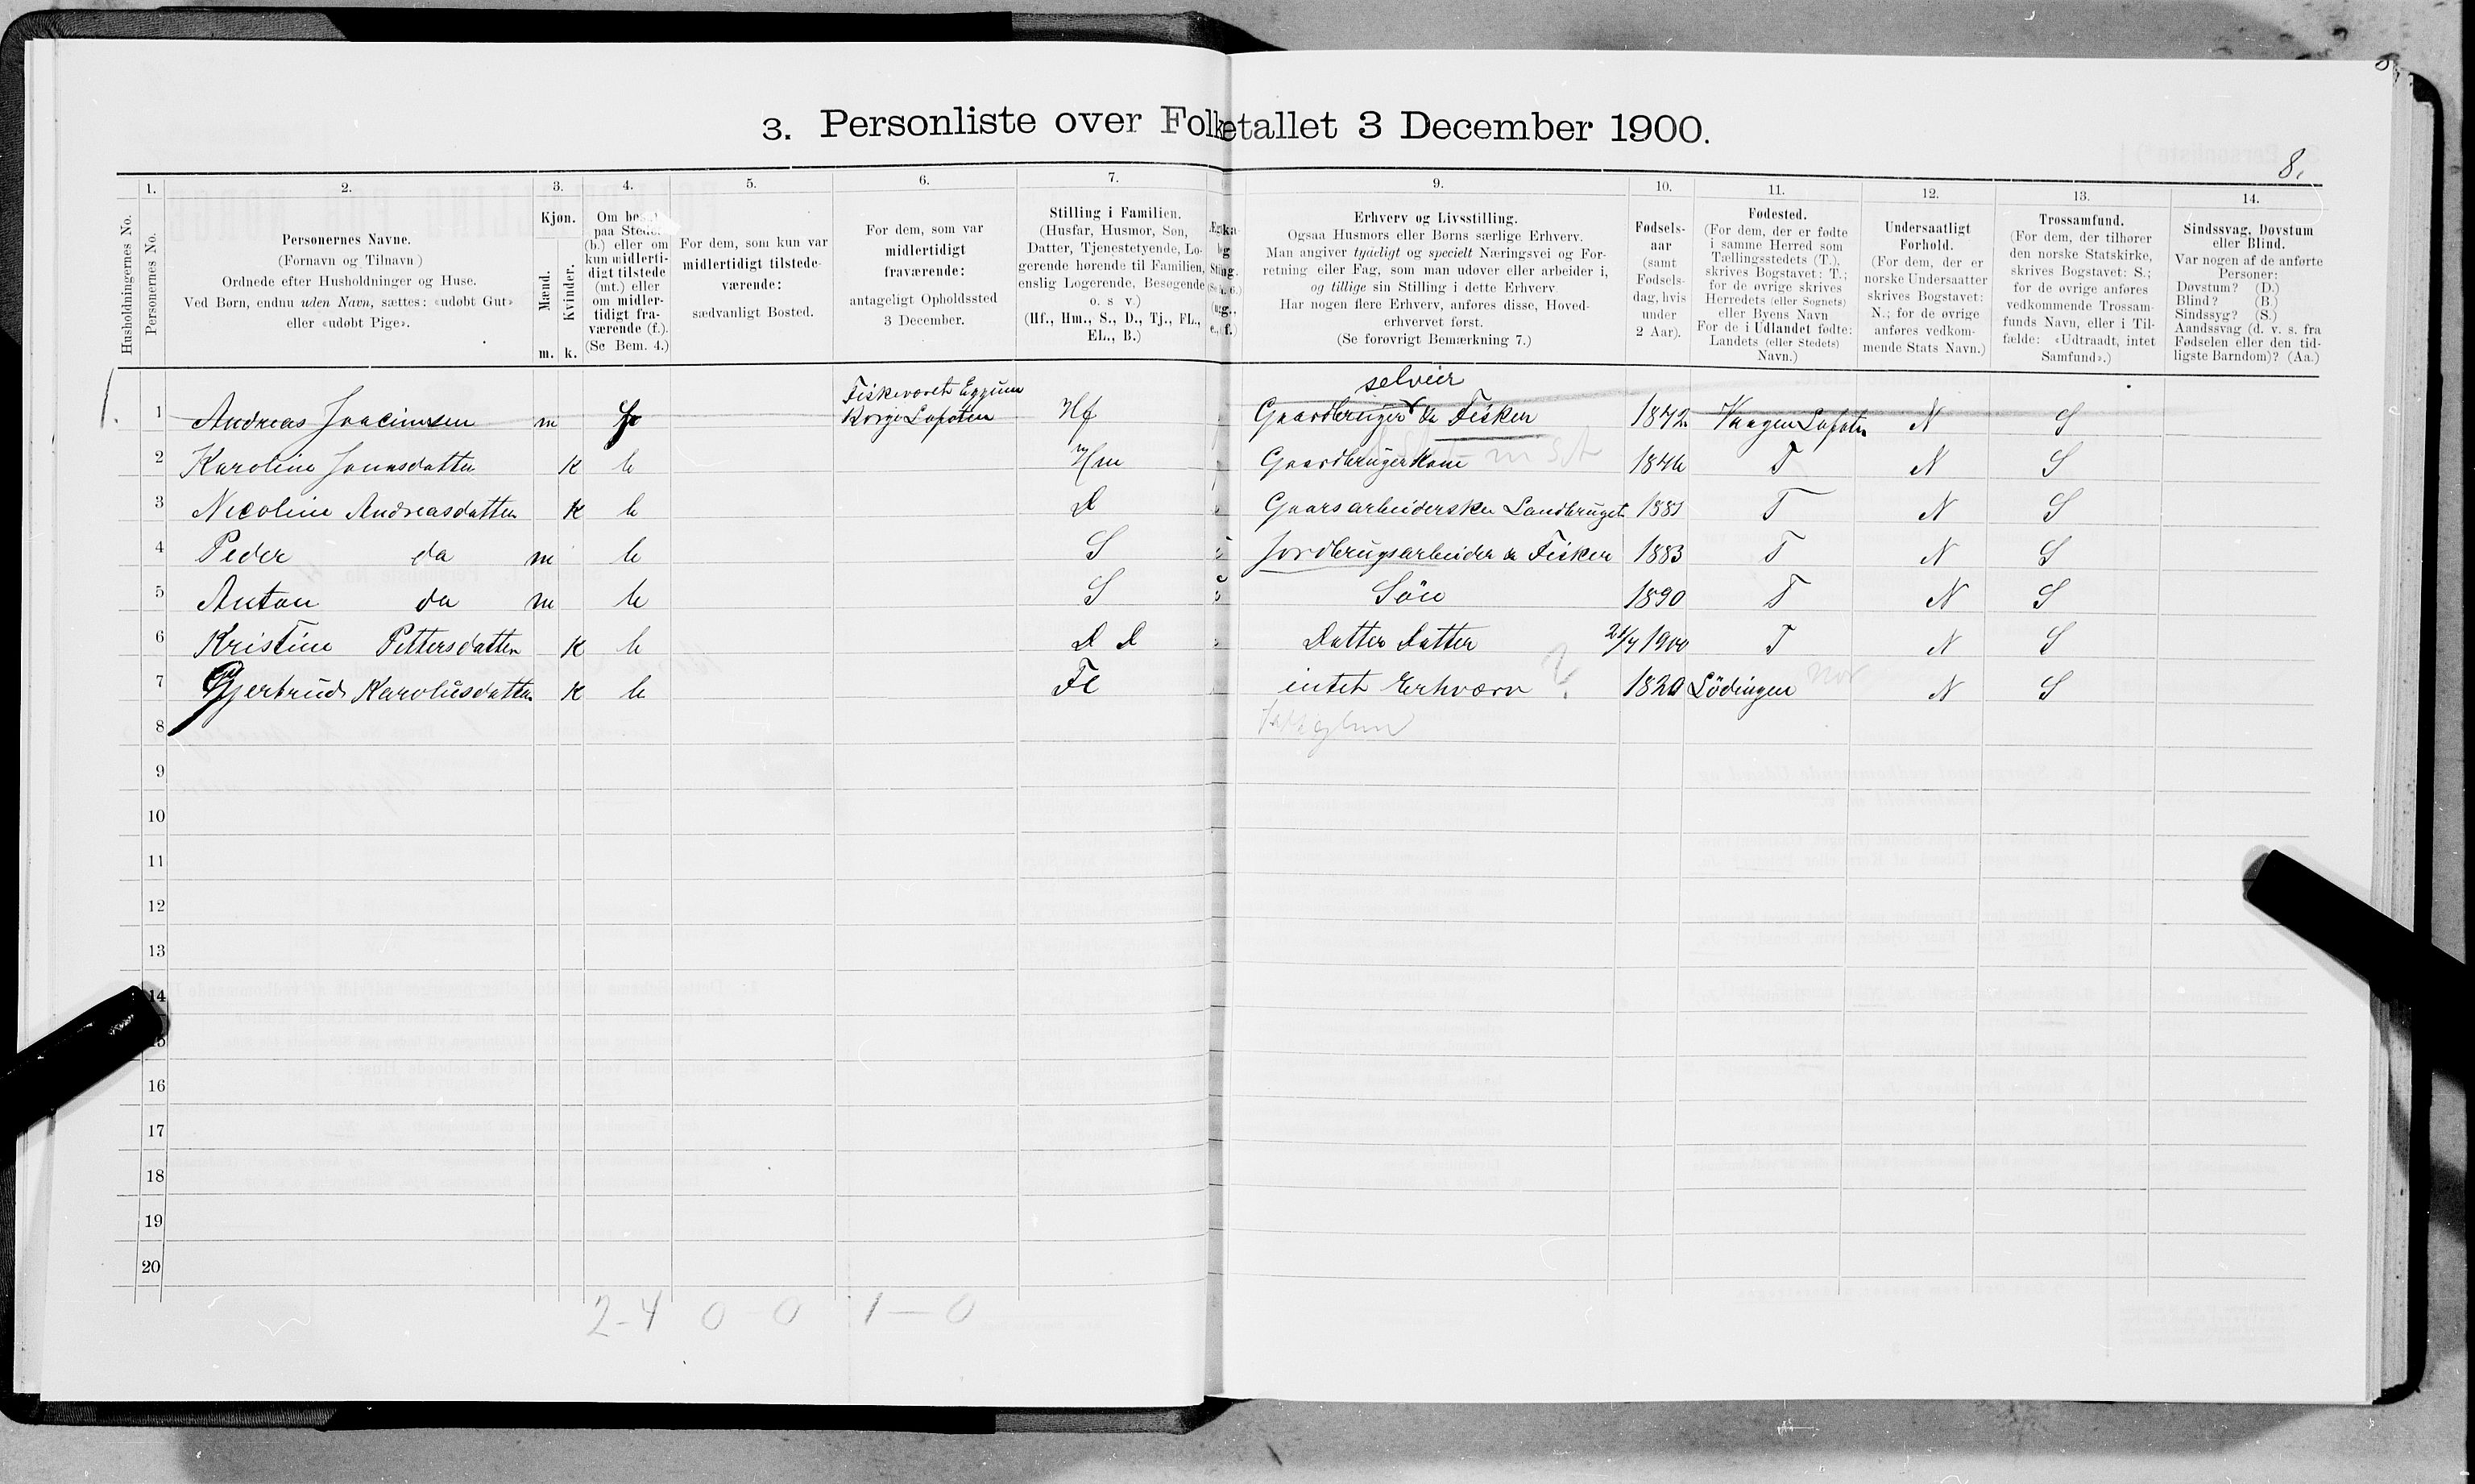 3. Personliste over Folketallet 3 December 1900.
8.
Husholdningernes No.
1.
Personernes No.
2.
Personernes Navne.
(Fornavn og Tilnavn)
Ordnede efter Husholdninger og Huse.
Ved Børn, endnu uden Navn, sættes: «udøbt Gut»
eller «udøbt Pige».
3.
Kjøn.
Mænd.
Kvinder.
m. k.
4.
Om
paa
(b.) eller om
kun midlerti-
digt tilstede
(mt.) eller
om midler-
tidigt fra-
værende (f.).
(Se Bem. 4.)
5.
For dem, som kun var
midlertidigt tilstede-
værende:
sædvanligt Bosted.
6.
For dem, som var
midlertidigt
fraværende:
antageligt Opholdssted
3 December.
7.
Stilling i Familien.
(Husfar, Husmor, Søn,
Datter, Tjenestetyende, Lo-
gerende hørende til Familien,
enslig Logerende, Besøgende
o. s v.)
(Hf., Hm., S., D., Tj., FL.,
EL., B.)
9.
Erhverv og Livsstilling.
Ogsaa Husmors eller Børns særlige Erhverv.
Man angiver tydeligt og specielt Næringsvei og For-
retning eller Fag, som man udøver eller arbeider i,
og tillige sin Stilling i dette Erhverv.
Har nogen flere Erhverv, anføres disse, Hoved-
erhvervet først.
(Se forøvrigt Bemærkning 7.)
10.
Fødsels-
aar
(samt
Fødsels-
dag, hvis
under
2 Aar).
11.
Fødested.
(For dem, der er fødte
i samme Herred som
Tællingsstedets (T.),
skrives Bogstavet: T.;
for de øvrige skrives
Herredets (eller Sognets)
eller Byens Navn
For de i Udlandet fødte:
Landets (eller Stedets)
Navn.)
12.
Undersaatligt
Forhold.
(For dem, der er
norske Undersaatter
skrives Bogstavet:
N.; for de øvrige
anføres vedkom-
mende Stats Navn.)
13.
Trossamfund.
(For dem, der tilhører
den norske Statskirke,
skrives Bogstavet: S.;
for de øvrige anføres
vedkommende Trossam-
funds Navn, eller i Til-
fælde: «Udtraadt, intet
Samfund».)
14.
Sindssvag, Døvstum
eller Blind.
Var nogen af de anførte
Personer:
Døvstum? (D.)
Blind? (B.)
Sindssyg? (S.)
Aandssvag (d. v. s. fra
Fødselen eller den tid-
ligste Barndom)? (Aa.)
Fiskeværet Eggum
selveier
1. 1 Andreas Joacimsen m f Borge Lofoten Hf Gaardbruger & Fisker 1842 Vaagen Lofoten N S
2 Karoline Jonasdatter k b Hm Gaardbrugerkone 1846 T N S
3 Nicoline Andreasdatter k b D Gaarsarbeiderske Landbruget 1881 T N S
4 Peder do m b S Jordbrugsarbeider & Fisker 1883 T N S
5 Anton do m b S Sön 1890 T N S
6 Kristine Pettersdatter k b D D Datter Datter 1900 T N S
7 Gjertrud Karolusdatter k b Fl intet Erhværv 1820 Lödingen N S
8
9
10
11
12
13
14
15
16
17
18
19
20
2-4 0 - 0 1 - 0